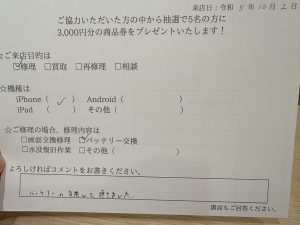 来店日：令和 5年10月2日
ご協力いただいた方の中から抽選で5名の方に
3,000円分の商品券をプレゼントいたします！
☆ご来店目的は
☑修理 □買取 □再修理 □相談
☆機種は
iPhone（ ✓ ） Android（ ）
iPad（ ） その他（ ）
☆ご修理の場合、修理内容は
□画面交換修理 ☑バッテリー交換
□水没復旧作業 □その他（ ）
よろしければコメントをお書きください。
バッテリーの交換して頂きました
裏面もご回答ください。